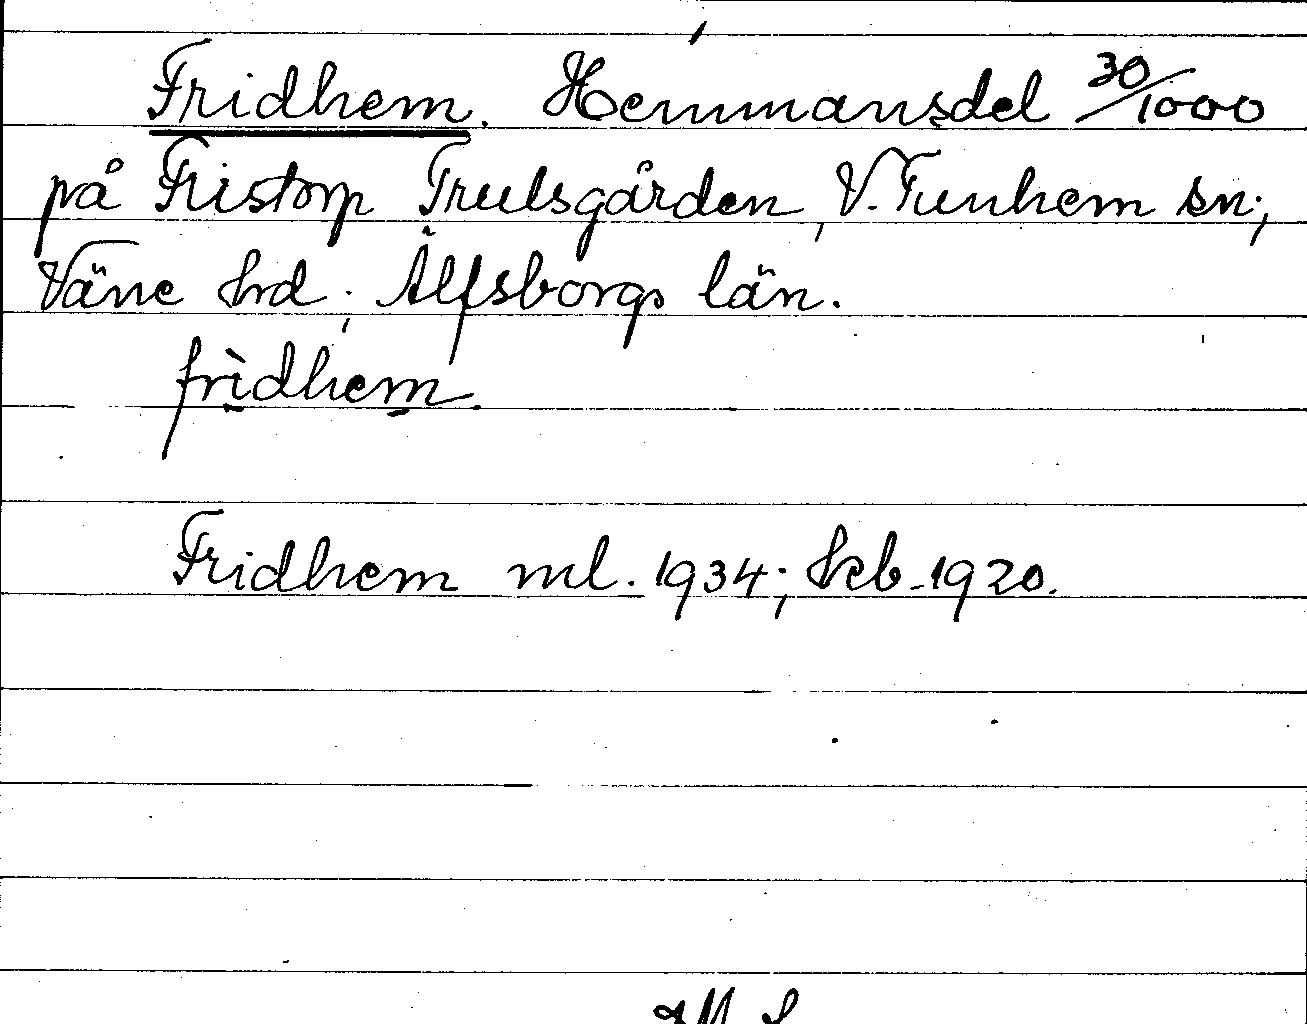 Fridhem. Hemmansdel 30/1000
på Fristorp Trulsgården, V. Tunhem sn;
Väne hrd; Älfsborgs län.
frìdhem
Fridhem ml. 1934; kb. 1920.